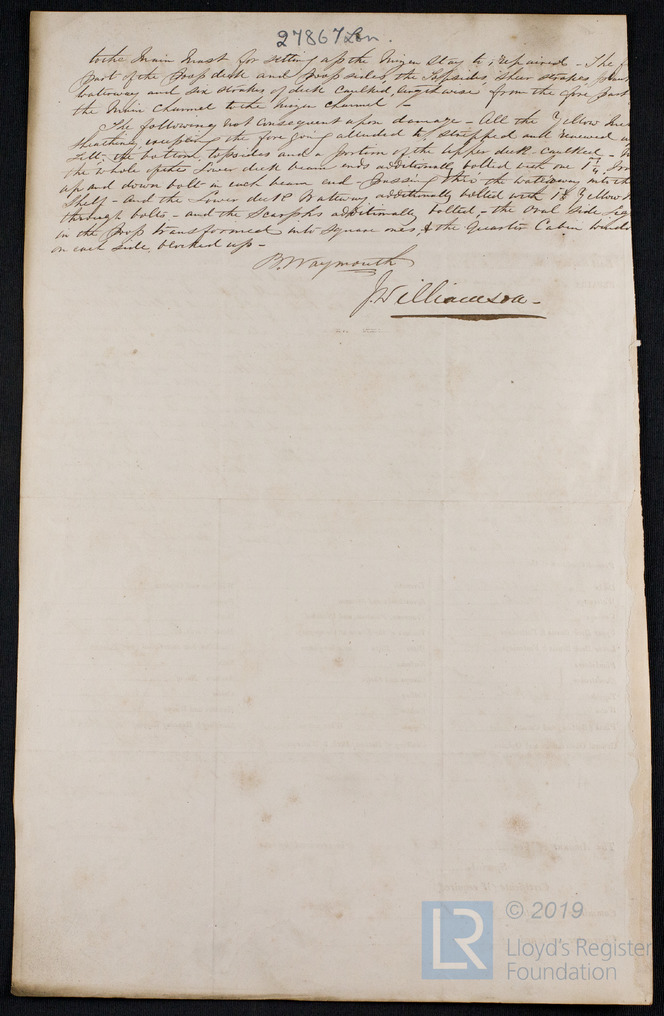 27867 Lon.
to the Main Mast for setting up the Mizen Stay to repaired - The
part of the Poop deck and Poop sides, the topsides, sheer strakes
waterways and six strakes of deck caulked, lengthwise from the fore part
the Main Channel to the mizen channel -
The following not consequent upon damage - All the Yellow
Sheathing excepting the fore going attended to, stripped and renewed
the bottom, topsides and a portion of the upper deck caulked -
the whole of the Lower deck beam ends additionally bolted with one
up and down bolt in each beam end passing thro' the waterways into the
Shelf - and the Lower deck Waterways additionally bolted with Yellow
through bolts - and the Scarphs additionally bolted, - the Oval Side
in the Poop transformed into Square ones, & the Quarter Cabin
on each side, blocked up -
B. Waymouth
J. Williamson -
© 2019
LR
Lloyd's Register
Foundation